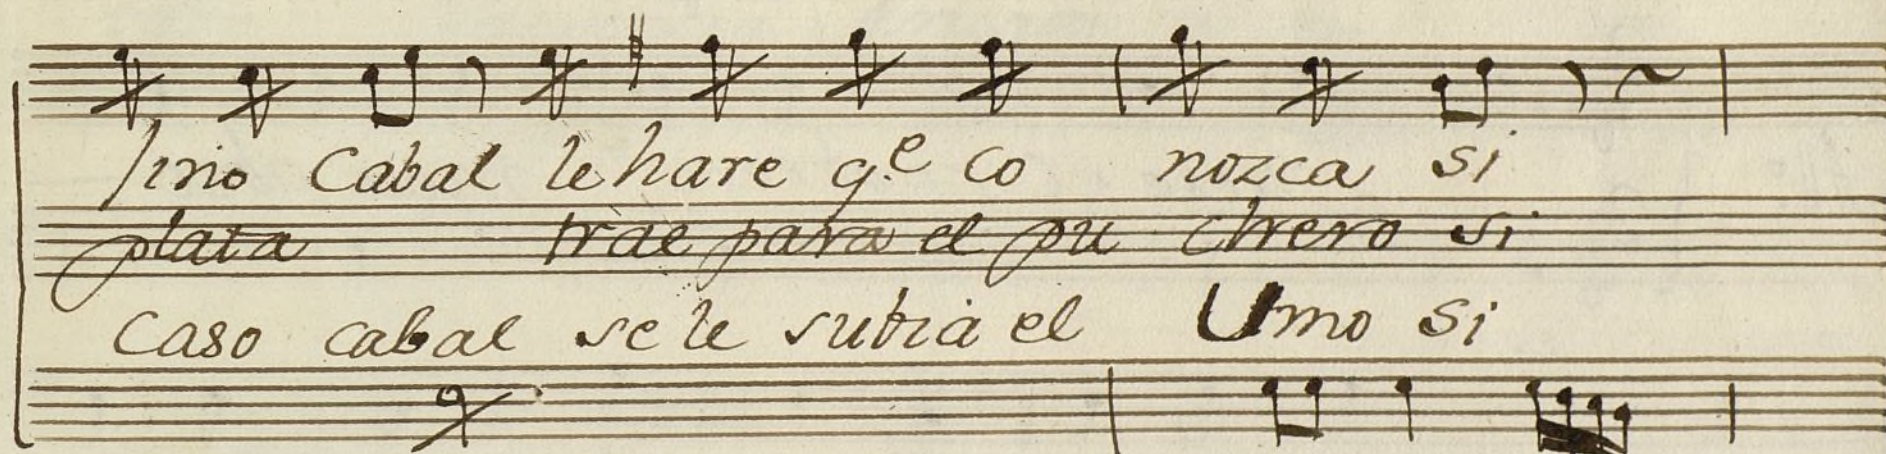 sino Cabal le hare q.e co nozca si
plata trae para el pu chrero si
Caso cabal se le subia el Umo si